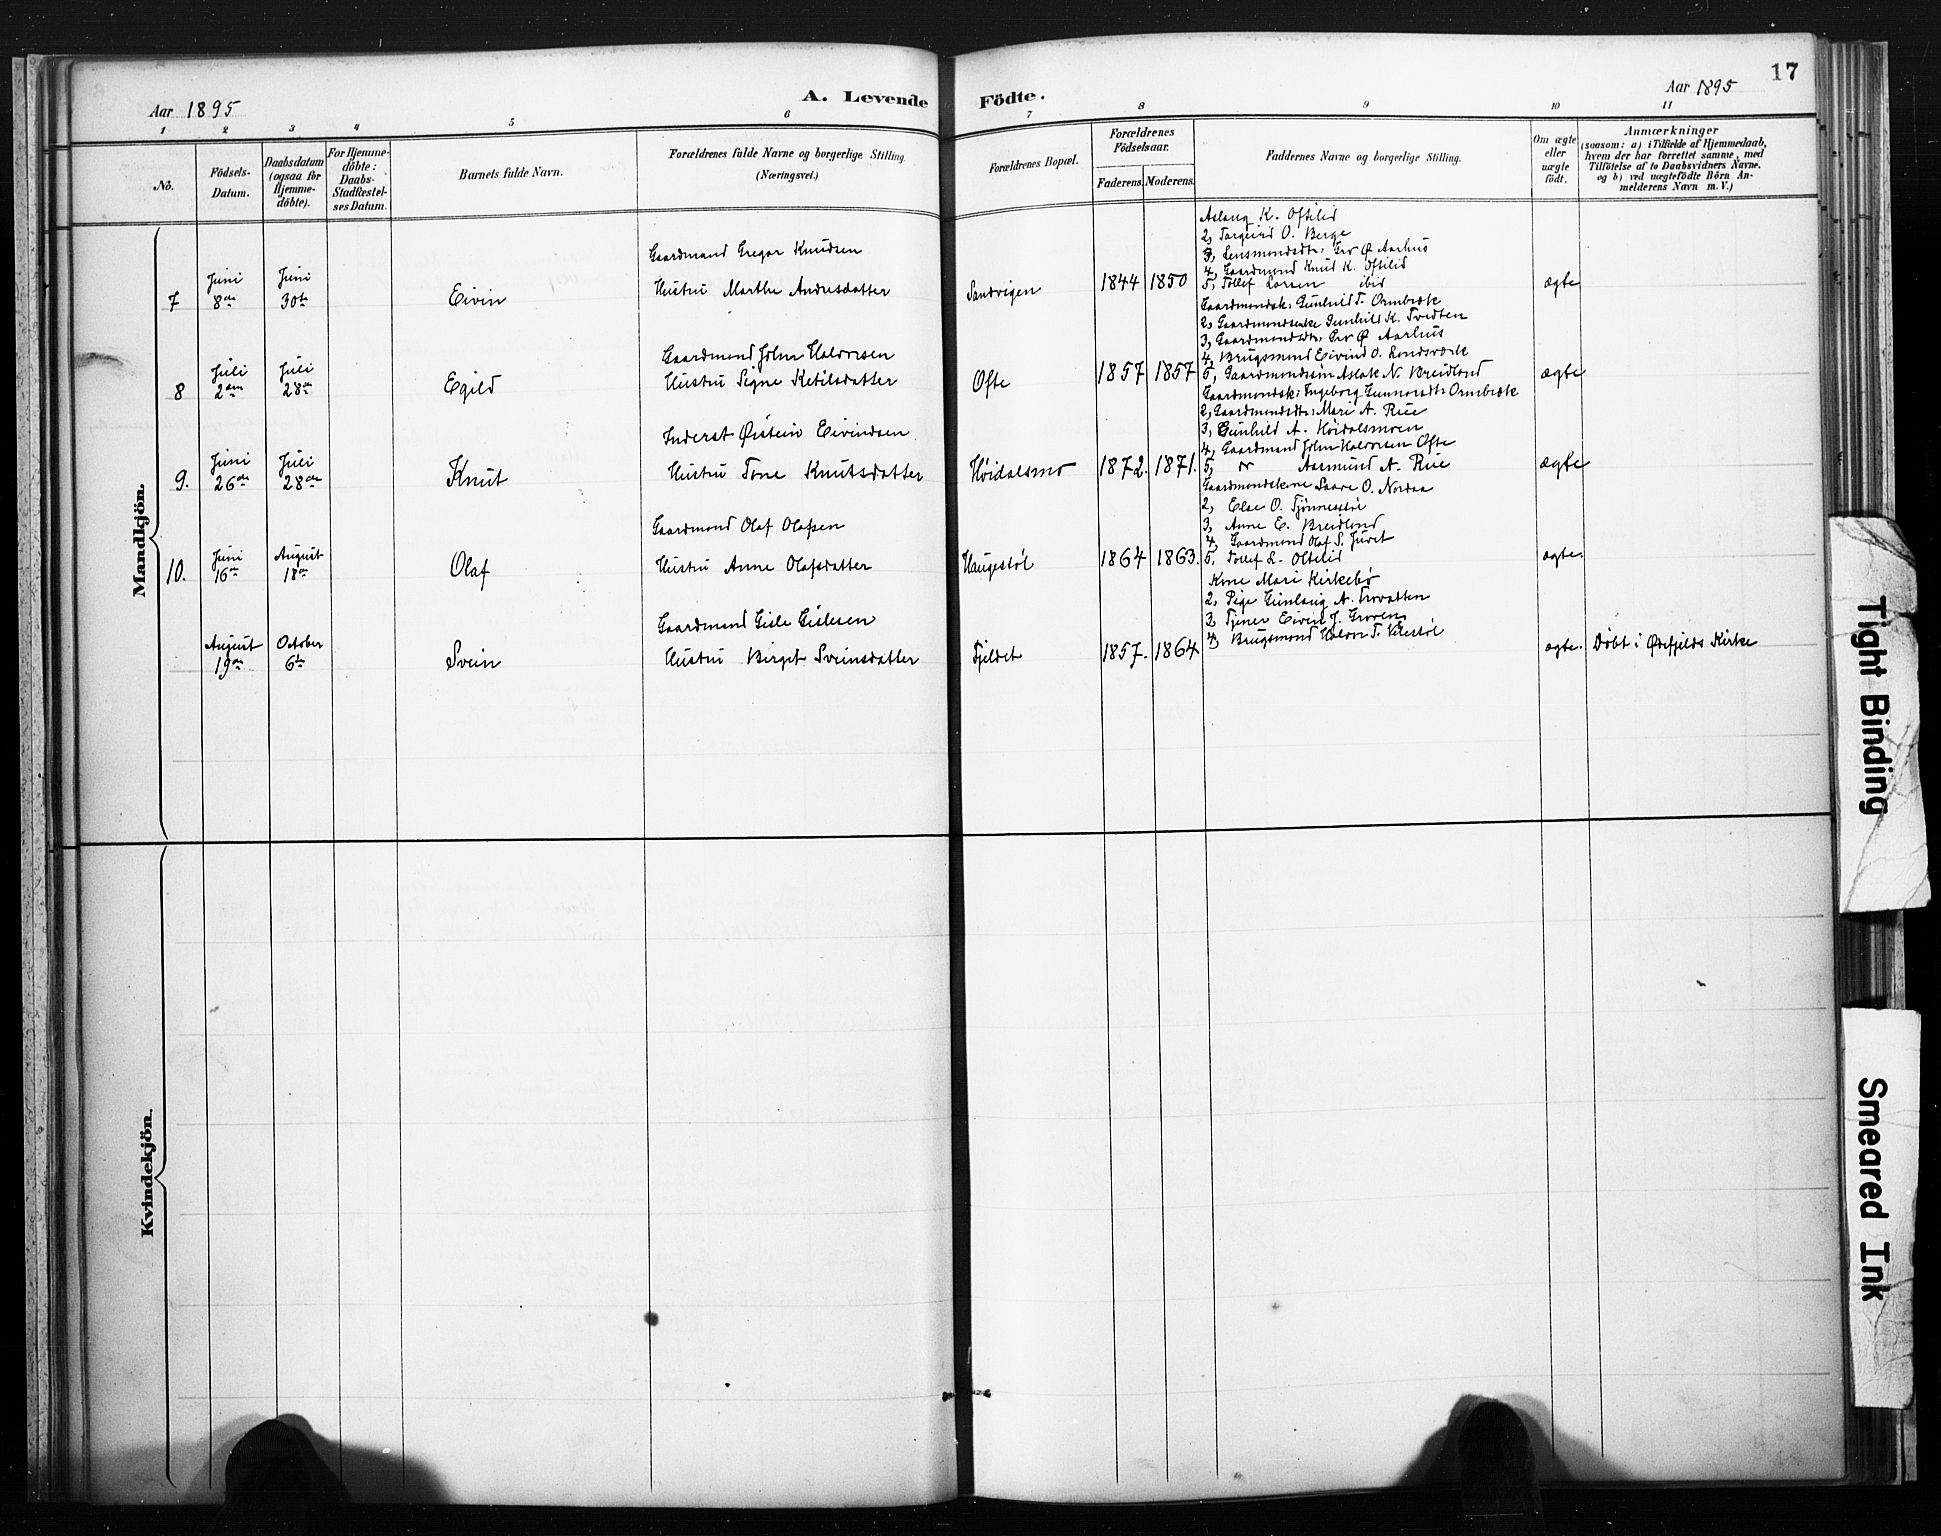 Aar 1895
A. Levende
Födte.
Aar 1895
17
1 2 3 4 5 6 7 8 9 10 11
No.
Födsels-
Datum.
Daabsdatum
(ogsaa för
Hjemme-
döbte).
For Hjemme-
döbte:
Daabs-
Stadfæstel-
ses Datum.
Barnets fulde Navn.
Forældrenes fulde Navne og borgerlige Stilling.
(Næringsvei.)
Forældrenes Bopæl.
Forældrenes
Födselsaar.
Faderens. Moderens.
Faddernes Navne og borgerlige Stilling.
Om ægte
eller
uægte
födt.
Anmærkninger
(saasom: a) i Tilfælde af Hjemmedaab,
hvem der har forrettet samme, med
Tilföielse af to Daabsvidners Navne.
og b) ved uægtefödte Börn An-
melderens Navn m. V.)
Mandkjön.
7
Juni
8de
Juni
30te
Eivin
Gaardmand Gregar Knudsen
Hustru Marthe Andresdatter
Sandvigen
1844 1850
Aslaug K. Oftelid
2, Targeird O. Berge
3, Lensmandsdtr. Gro Ø. Aarhus
4, Gaardmand Knud K. Oftelid
5, Tollef Larsen ibid
ægte
8
Juli
2den
Juli
28de
Egild
Gaardmand John Halvorsen
Hustru Signe Ketilsdatter
Ofte
1857 1857
Gaardmandsk: Gunhild T. Ormbræk
2, Gaardmandsenke Gunhild K. Tvedten
3, Gaardmandsdtr. Gro Ø Aarhus
4, Brugsmand Eivind O. Landsværk
5, Gaardmandssøn Aslak N. Breidland
ægte
9.
Juni
26de
Juli
28de
Knut
Inderst Øistein Eivindsen
Hustru Tone Knutsdatter
Høidalsmo
1872. 1871.
Gaardmandsk: Ingeborg Gunnarsdtr. Ormbræk
2, Gaardmandsdtr: Mari A. Rue
3, Gunhild A. Høidalsmoen
4, Gaardmand John Halvorsen Ofte
5, Aamund A. Rue
ægte
10.
Juni
16de
August
18de
Olaf
Gaardmand Olaf Olafsen
Hustru Anne Olafsdatter
Haugestøl
1864 1863.
Gaardmandskone Saave O. Nordaa
2, Else O. Tjønnestøl
3, Anne E. Breidland
4, Gaardmand Olaf S. Juvet
5, Tollef L. Oftelid
ægte.
August
19de
October
6te
Svein
Gaardmand Gisle Gislesen
Hustru Birget Sveinsdatter
Fjeldet
1857. 1864
Kone Mari Kirkebø
2, Pige Gunlaug A. Trovatten
3, Tjener Eivin J. Groven
4, Brugsmand Halvor T.
ægte.
Døbt i Øifjelds Kirke
Kvindekjön.
Tight Binding
Smeared Ink